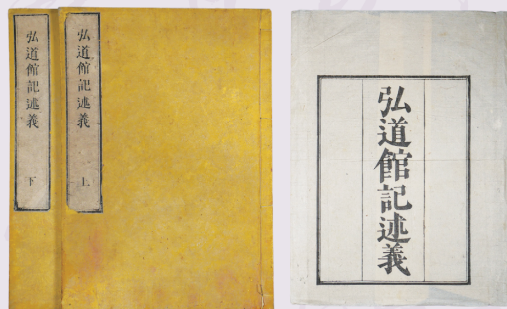 弘道館記述義 下
弘道館記述義 上
弘道館記述義